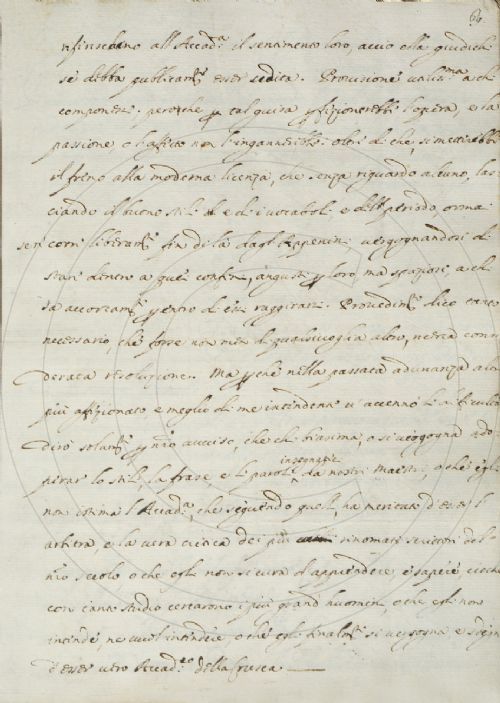 66
riferischano all'Accad.ª il sentimento loro, acciò ella giudichi
se debba publicam.te esser sedita. Provisione utiliss.ma a chi
compone: perche p tal guisa pfezionerebbe l'opera, e la
passione o l'affetto non l'ingannerebbe: oltre di che, si metterebbe
il freno alla moderna licenza, che senza riguardo alcuno, las
ciando il buono stile e di vocaboli e del periodo, ormai
sen corre liberam.te fin di là dagl'Appennini uergognandosi di
stare dentro a quei confini, angusti p loro, ma spaziosi a chi
sa accortam.te p entro di essi raggirarsi. Provedim.to dico tanto
necessario, che forse non men di qualsivoglia altro, merita consi
derata resoluzione. Ma pche nella passata adunanza alcun
più affezionato e meglio di me intendente n'accennò l'articulo
dirò solam.te p mio avviso, che chi biasima, o si vergogna ado
perar lo stile la frase e le parole insegnatie da nostri Maestri, o ch'egli
non istima l'Accad.ª, che seguendo quelle, ha meritato d'esser l'
arbitra, e la vera critica dei più rinomati scrittori del
mio secolo o che egli non si cura d'apprendere e sapere ciò che
con tanto studio cercarono i più grandi huomini, o che egli non
intende, ne vuol intendere o che egli finalm.te si vergogna e sdegna
d'esser vero Accad.co della Crusca.